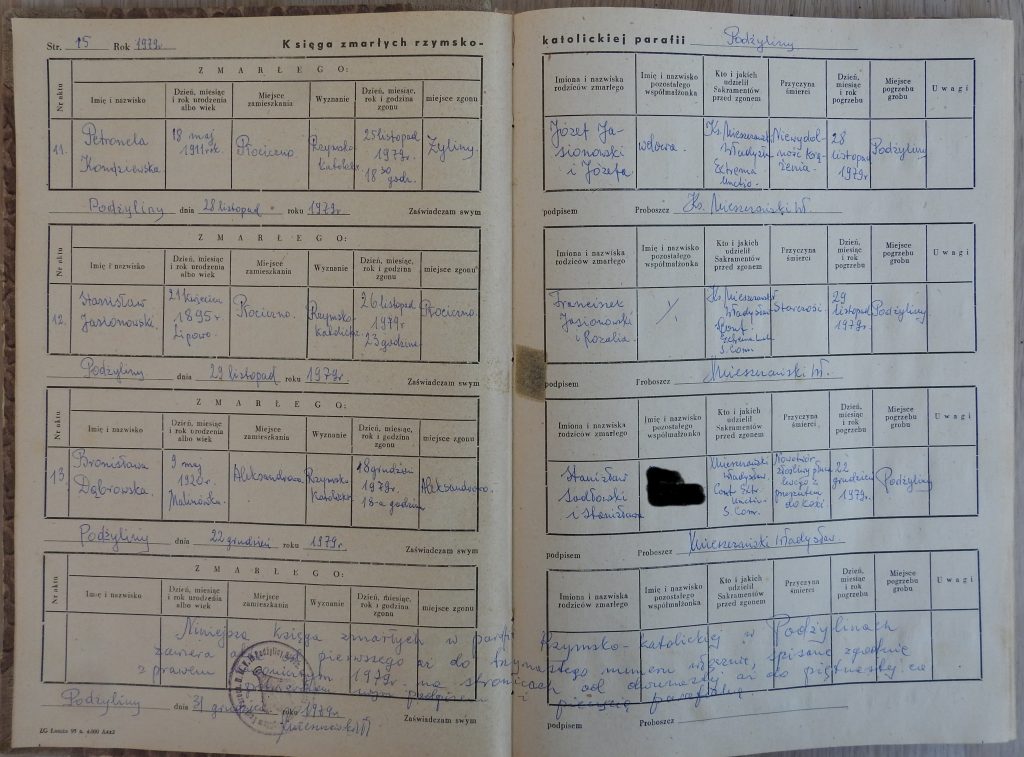 Str. 15 Rok 1979r. Księga zmarłych rzymsko-
Nr aktu
ZMARŁEGO:
Imię i nazwisko
Dzień, miesiąc i rok urodzenia albo wiek
Miejsce zamieszkania
Wyznanie
Dzień, miesiąc, rok i godzina zgonu
miejsce zgonu
11.
Petronela
18 maj
1911 rok.
Rociczno
Rzymsko-
Katolicka
25 listopad
1979r.
18 30 godz.
Żyliny.
Podżyliny dnia 28 listopad roku 1979r Zaświadczam swym
Nr aktu
ZMARŁEGO:
Imię i nazwisko
Dzień, miesiąc i rok urodzenia albo wiek
Miejsce zamieszkania
Wyznanie
Dzień, miesiąc, rok i godzina zgonu
miejsce zgonu
12.
Stanisław
Jasionowski.
21 kwiecień
1895r
Lipowo.
Rociczno.
Rzymsko-
26 listopad
1979r
23 godzina
Rociczno.
Podżyliny dnia 29 listopad roku 1979r. Zaświadczam swym
Nr aktu
ZMARŁEGO:
Imię i nazwisko
Dzień, miesiąc i rok urodzenia albo wiek
Miejsce zamieszkania
Wyznanie
Dzień, miesiąc, rok i godzina zgonu
miejsce zgonu
13.
Bronisława
Dąbrowska.
9 maj
1920r
Malinówka.
Aleksandrowo.
Rzymsko-
Katolicka
18 grudzień
1979r.
18-a godzina
Aleksandrowo.
Podżyliny dnia 22 grudzień roku 1979r. Zaświadczam swym
Nr aktu
ZMARŁEGO:
Imię i nazwisko
Dzień, miesiąc i rok urodzenia albo wiek
Miejsce zamieszkania
Wyznanie
Dzień, miesiąc, rok i godzina zgonu
miejsce zgonu
Niniejsza księga zmarłych w parafii
zawiera pierwszego aż do
z prawem 1979r. na stronicach
podpisem i
Podżyliny dnia 31 roku 1979r. Zaświadczam swym
katolickiej parafii Podżyliny
Imiona i nazwiska rodziców zmarłego
Imię i nazwisko pozostałego współmałżonka
Kto i jakich udzielił Sakramentów przed zgonem
Przyczyna śmierci
Dzień, miesiąc i rok pogrzebu
Miejsce pogrzebu grobu
Uwagi
Józef Ja-
sionowski
i Józefa
wdowa.
Ks. Mieszerański
Władysław
Extrema
Unctio.
Niewydol-
ność krą-
żenia.
28
listopad
1979r
Podżyliny
podpisem Proboszcz Ks. Mieszerański Wł.
Imiona i nazwiska rodziców zmarłego
Imię i nazwisko pozostałego współmałżonka
Kto i jakich udzielił Sakramentów przed zgonem
Przyczyna śmierci
Dzień, miesiąc i rok pogrzebu
Miejsce pogrzebu grobu
Uwagi
Franciszek
Jasionowski
i Rozalia.
Ks. Mieszerański
Władysław
S. Com.
Starość.
29
listopad
1979r.
Podżyliny
podpisem Proboszcz Mieszerański Wł.
Imiona i nazwiska rodziców zmarłego
Imię i nazwisko pozostałego współmałżonka
Kto i jakich udzielił Sakramentów przed zgonem
Przyczyna śmierci
Dzień, miesiąc i rok pogrzebu
Miejsce pogrzebu grobu
Uwagi
Stanisław
Sadłowski
i Stanisława
Mieszerański
Władysław.
Conf. Extr.
Unctio.
S. Com.
Nowotwór
złośliwy
z
do kości.
22
grudzień
1979r.
Podżyliny
podpisem Proboszcz Mieszerański Władysław
Imiona i nazwiska rodziców zmarłego
Imię i nazwisko pozostałego współmałżonka
Kto i jakich udzielił Sakramentów przed zgonem
Przyczyna śmierci
Dzień, miesiąc i rok pogrzebu
Miejsce pogrzebu grobu
Uwagi
Rzymsko-katolickiej w Podżylinach
numeru włącznie, spisane zgodnie
od aż do piętnastej
i pieczęcią parafialną
podpisem Proboszcz
ZG Łomża